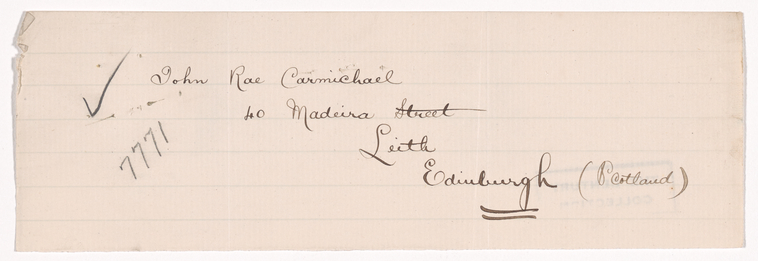 John Rae Carmichael
40 Madeira Street
Leith
Edinburgh (Scotland)
7771